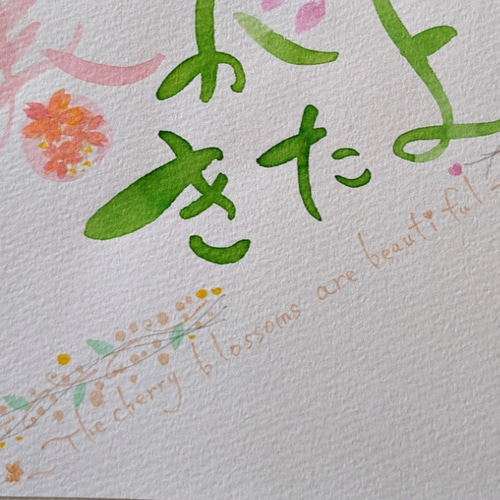 きたよ
The cherry blossoms are beautiful